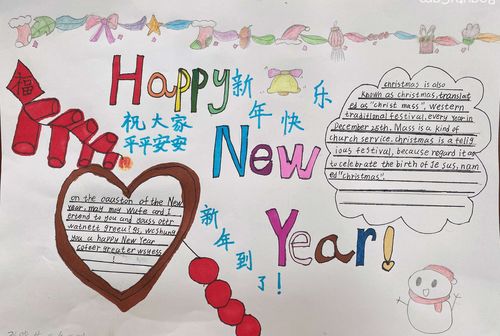 Happy
New
Year!
福
新年快乐
祝大家
平平安安
新年到了!
christmas is also
known as christmas, translat
ed as "christ mass", western
traditional festival, every year in
December 25th. Mass is a kind of
church service. Christmas is a relig
ious festival, because regard it as
to celebrate the birth of Je sus, nam
ed "christmas".
on the oaaston of the New
year, may my wufe and I
extend to you and
you a happy New Year